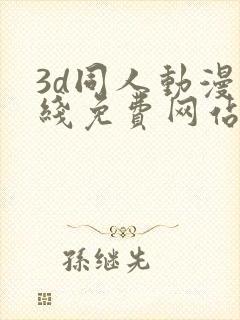 3d同人動漫
綫免費网佔
孫继先